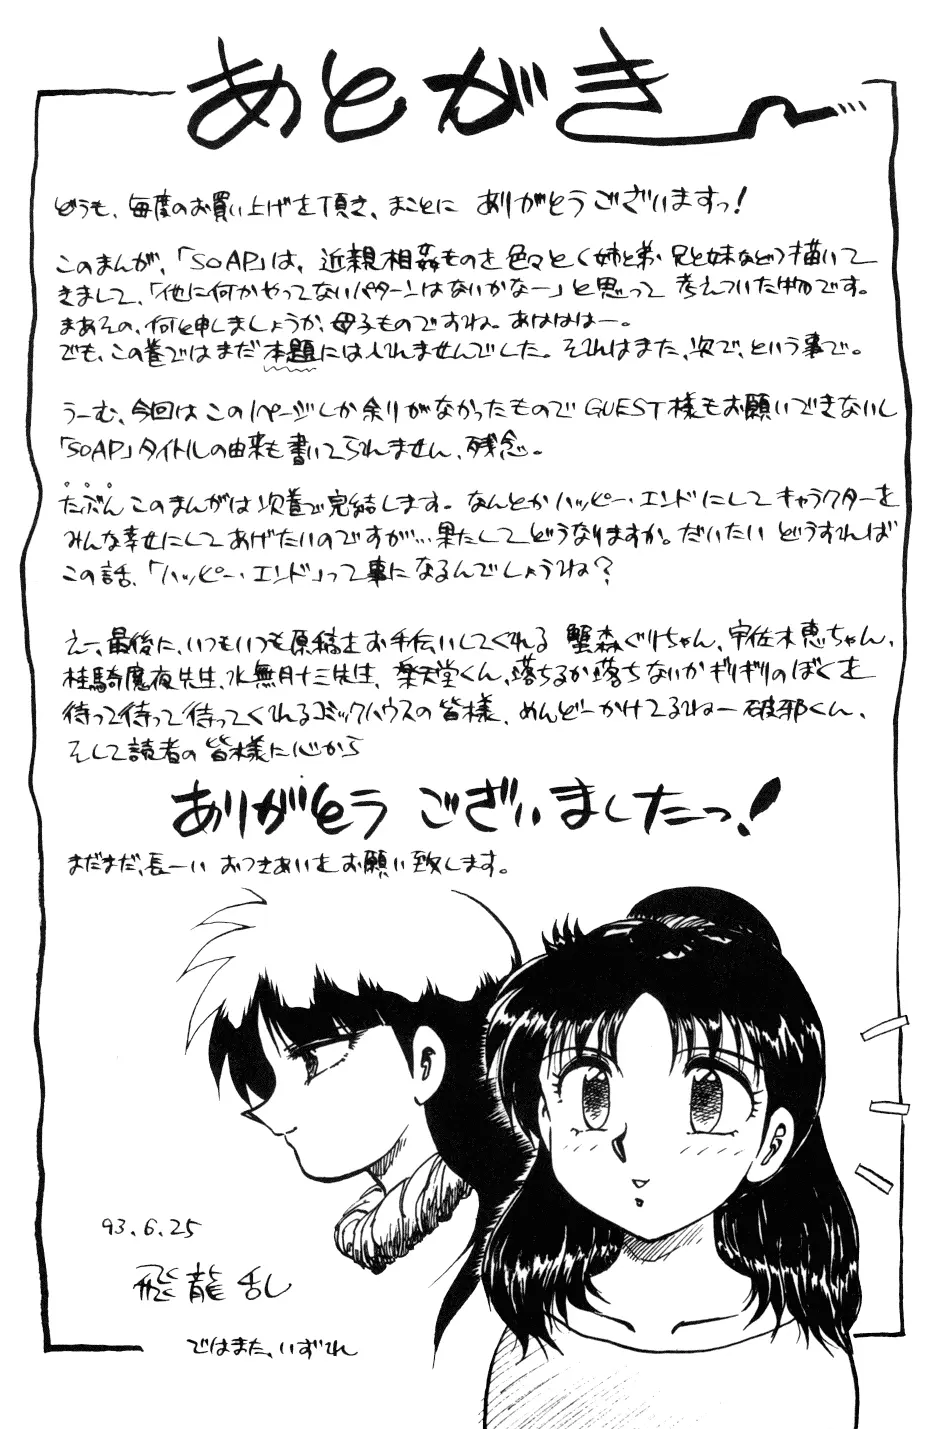 あとがき〜…
どうも、毎度のお買い上げを頂き、まことに ありがとうございますっ!
このまんが、「SOAP」は、近親相姦ものを色々とく姉と弟・兄と妹などっ描いて
きまして、「他に何かやってないパターンはないかなー」と思って 考えついた物です。
まあその、何と申しましょうか、母子ものですね。あはははー。
でも、この巻ではまだ本題には入れませんでした。それはまた、次で、という事で。
うーむ、今回はこの1ページしか余りがなかったもので GUEST様もお願いできないし
「SOAP」タイトルの由来も書いてられません、残念。
たぶんこのまんがは次巻で完結します。なんとかハッピー・エンドにしてキャラクターを
みんな幸せにしてあげたいのですが…果たしてどうなりますか。だいたい どうすれば
この話、「ハッピー・エンド」って事になるんでしょうね?
えー、最後に、いつもいつも原稿をお手伝いしてくれる 蟹森ぐりちゃん、宇佐木恵ちゃん、
桂騎魔夜先生、水無月十三先生、楽天堂くん、落ちるか落ちないかギリギリのぼくを
待って待って待ってくれるコミックハウスの皆様、めんどーかけてるねー破邪くん、
そして読者の皆様に心から
ありがとうございましたっ!
まだまだ、長ーい おつきあいをお願い致します。
93.6.25
飛龍乱
ではまた、いずれ